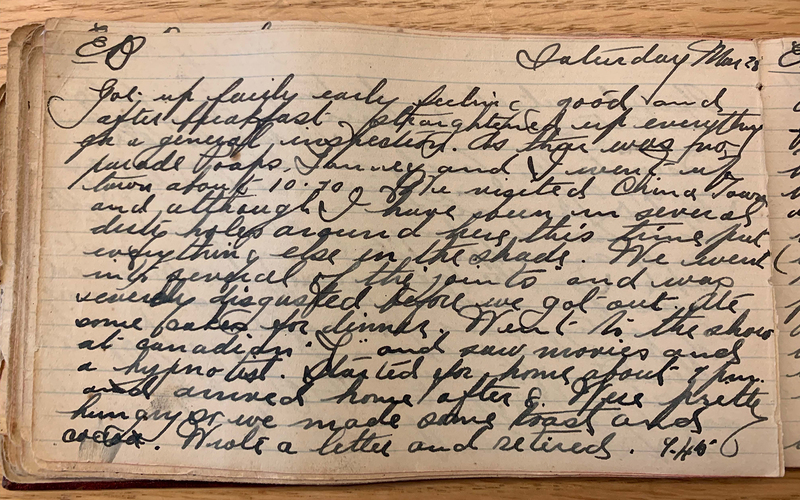 Saturday Mar 28
Got up fairly early feeling good and
after breakfast straightened up everything
for a general inspection. As there was no
parade today, and I went up
town about 10.30. We visited China Town
and although I have been in several
dirty holes around here this time put
everything else in the shade. We went
into several of the joints and was
severely disgusted before we got out. Ate
some cakes for dinner. Went to the show
at Canadian "Y" and saw movies and
a hypnotist. Started for home about 7 p.m.
and arrived home after 8. Was pretty
hungry so we made some toast and
cocoa. Wrote a letter and retired. 9.45